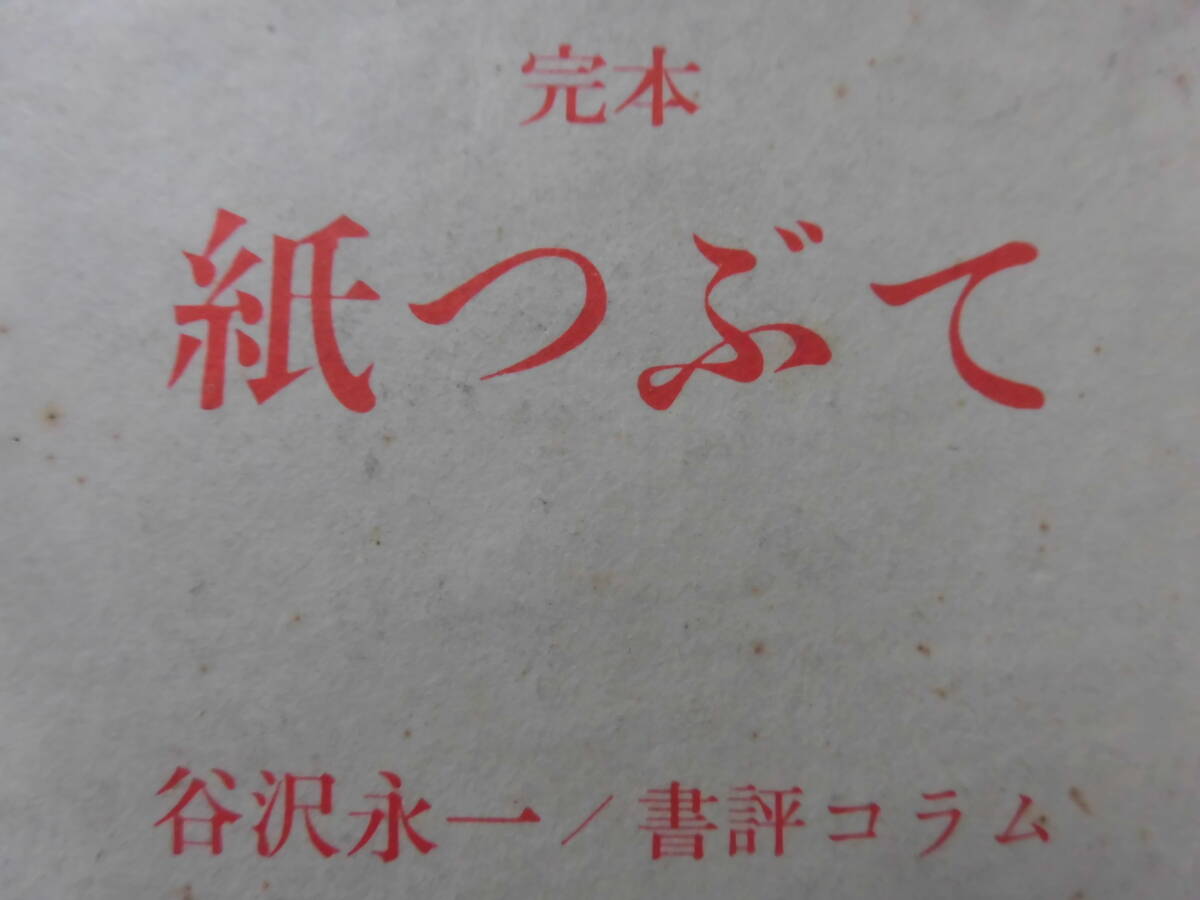 完本
紙つぶて
谷沢永一/書評コラム